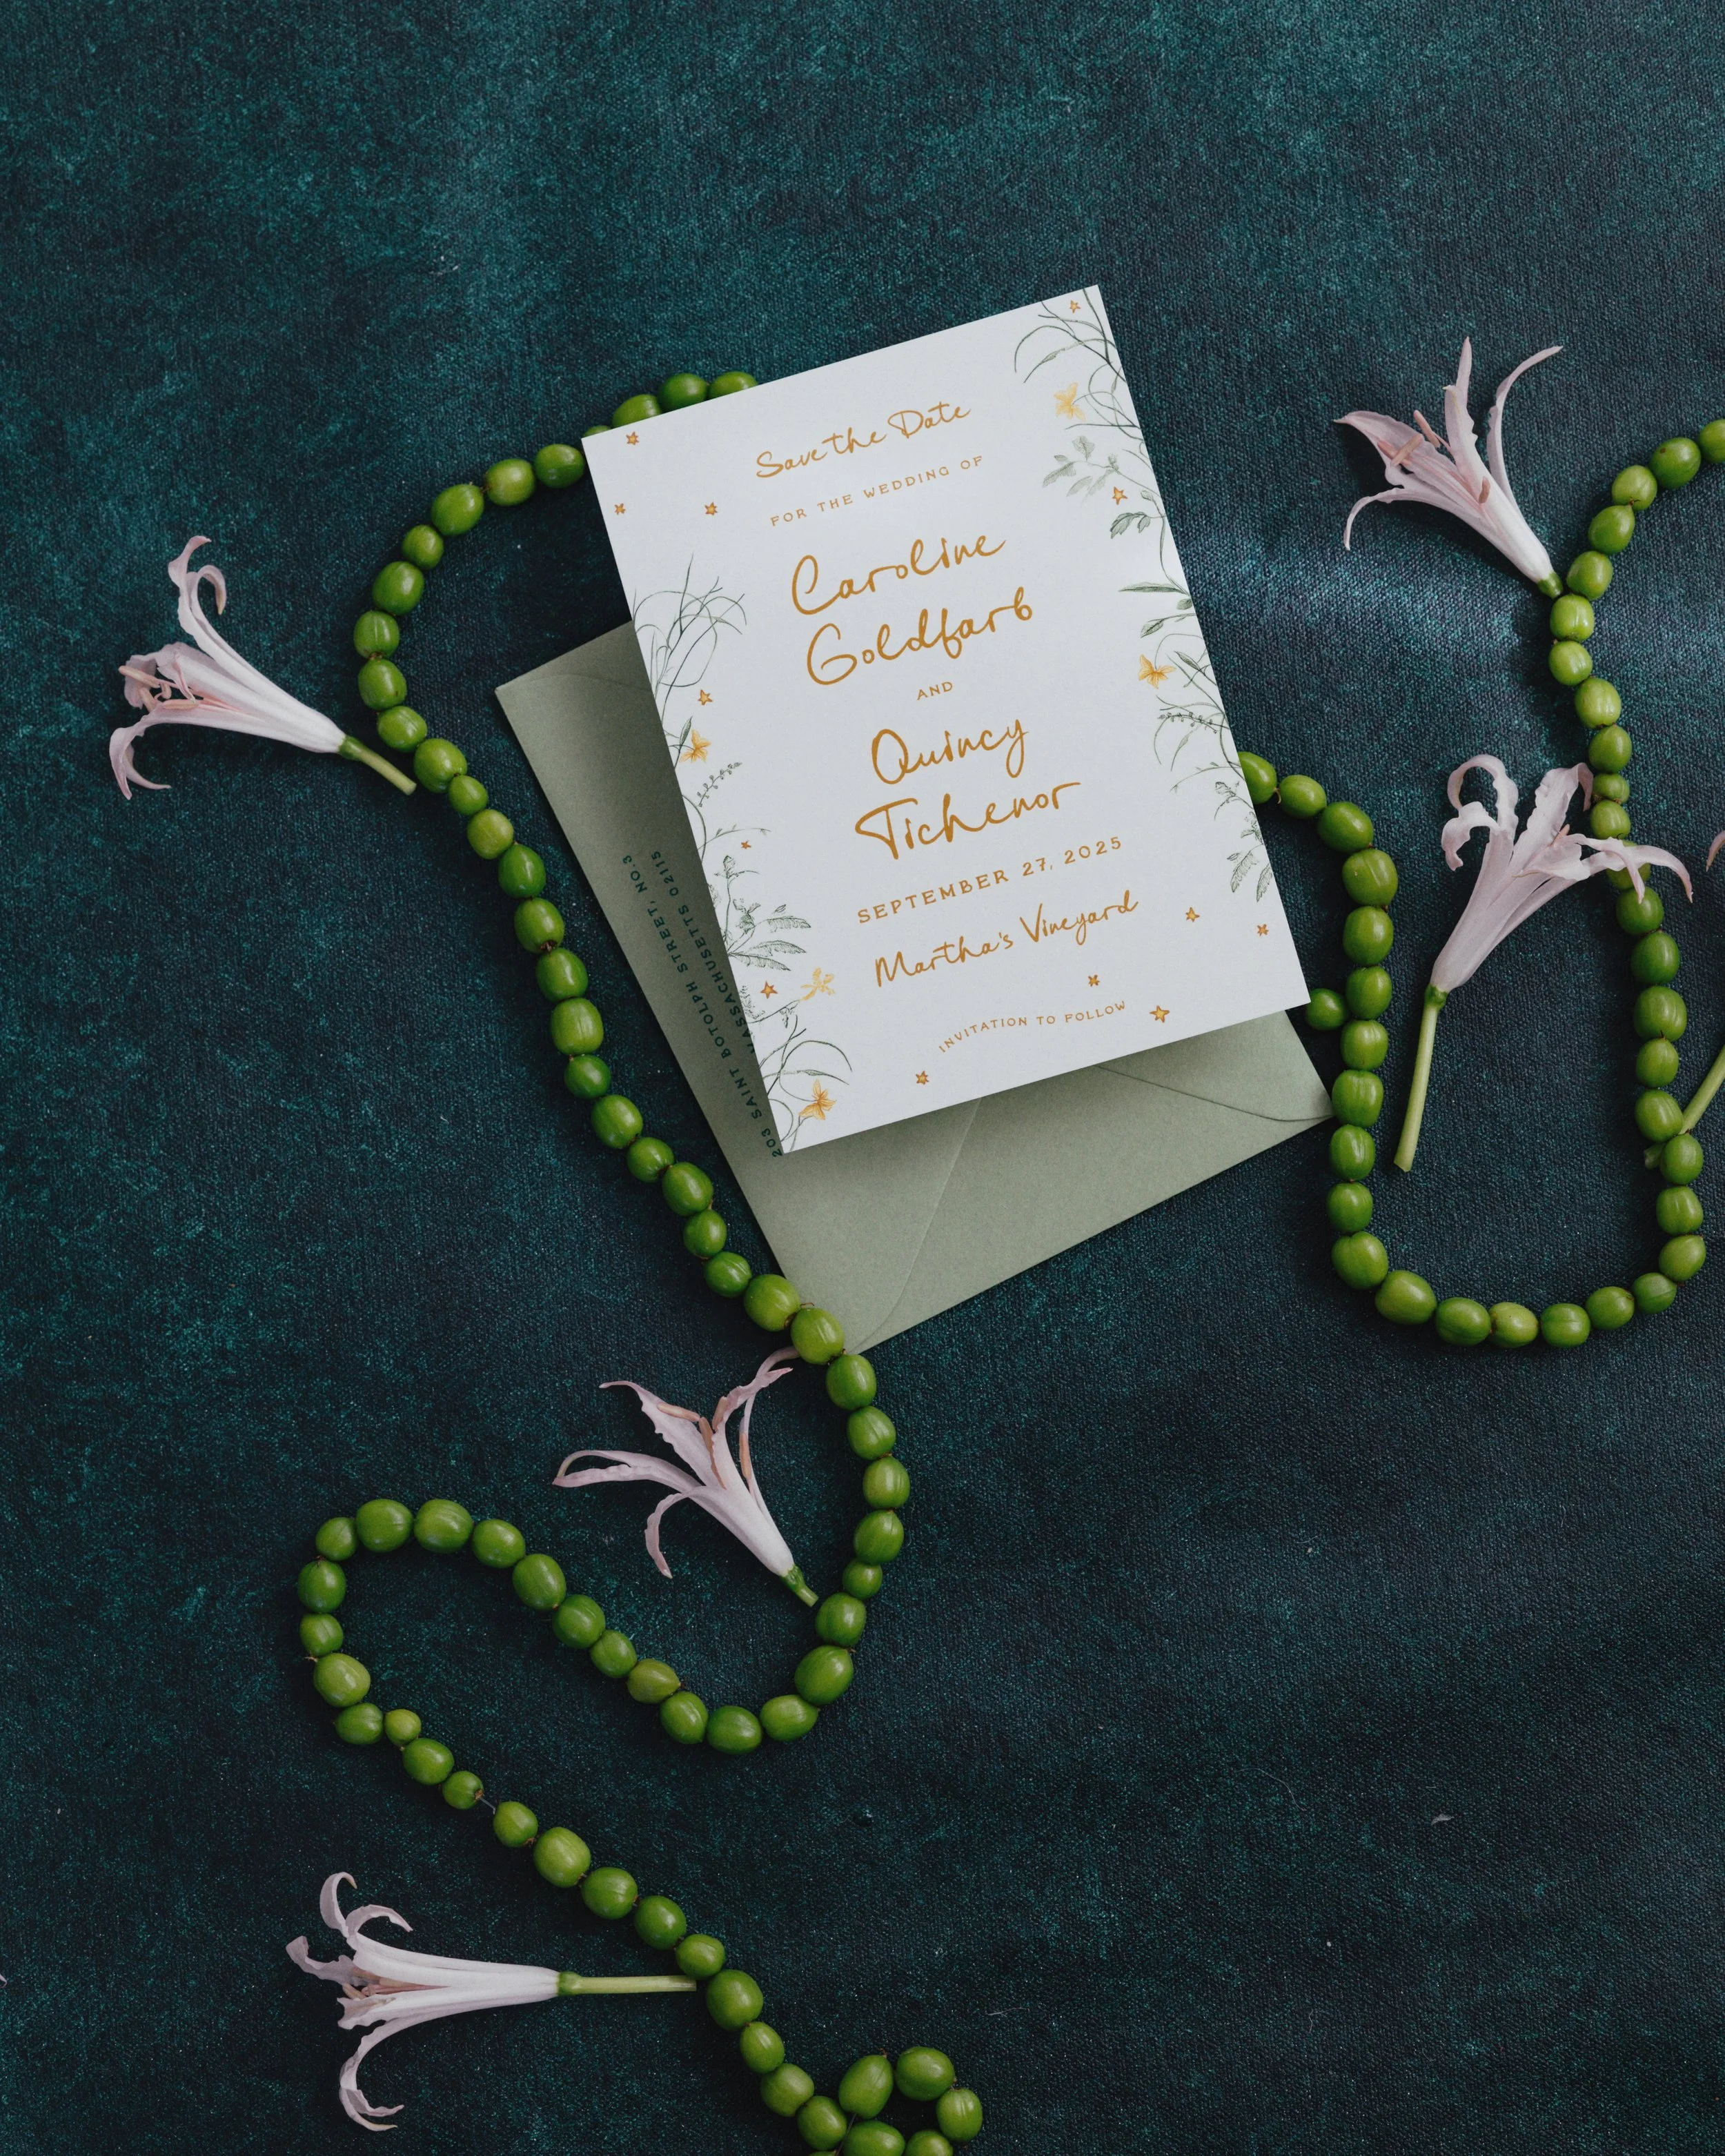 Save the Date
FOR THE WEDDING OF
Caroline
Goldfarb
AND
Quincy
Tichenor
SEPTEMBER 27, 2025
Martha's Vineyard
INVITATION TO FOLLOW
203 SAINT BOTOLPH STREET, NO.3
MASSACHUSETTS 02115